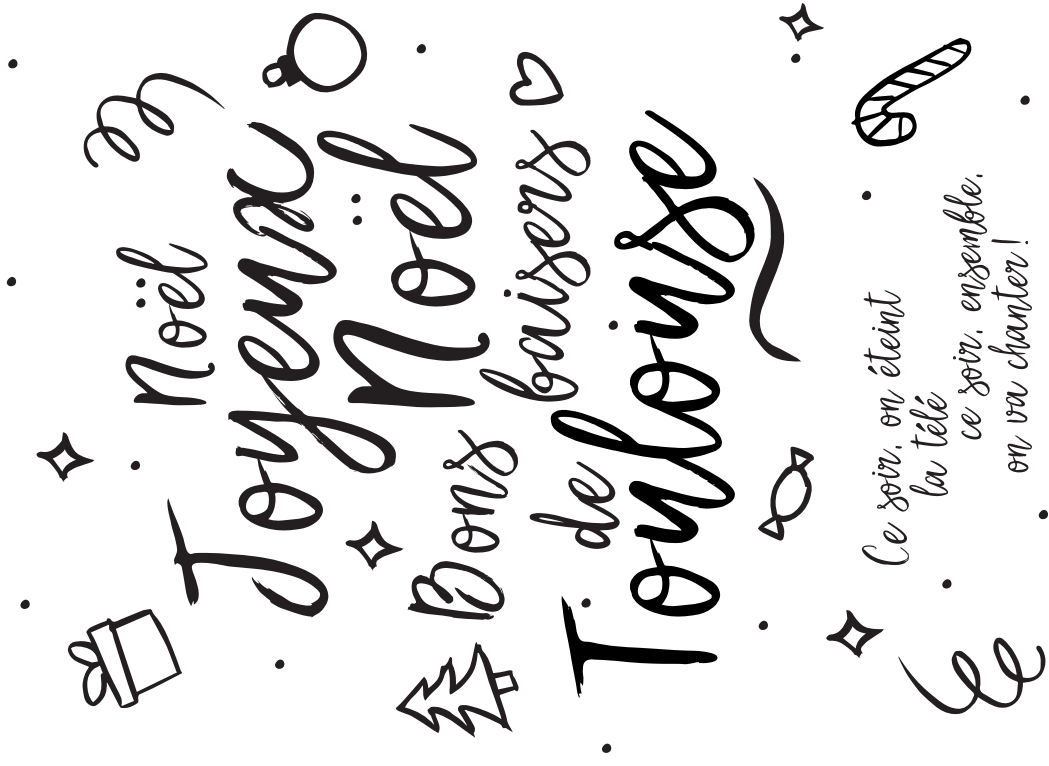 noël
Joyeux
Noël
Bons baisers
de
Toulouse
Ce soir, on éteint
la télé
ce soir, ensemble,
on va chanter !